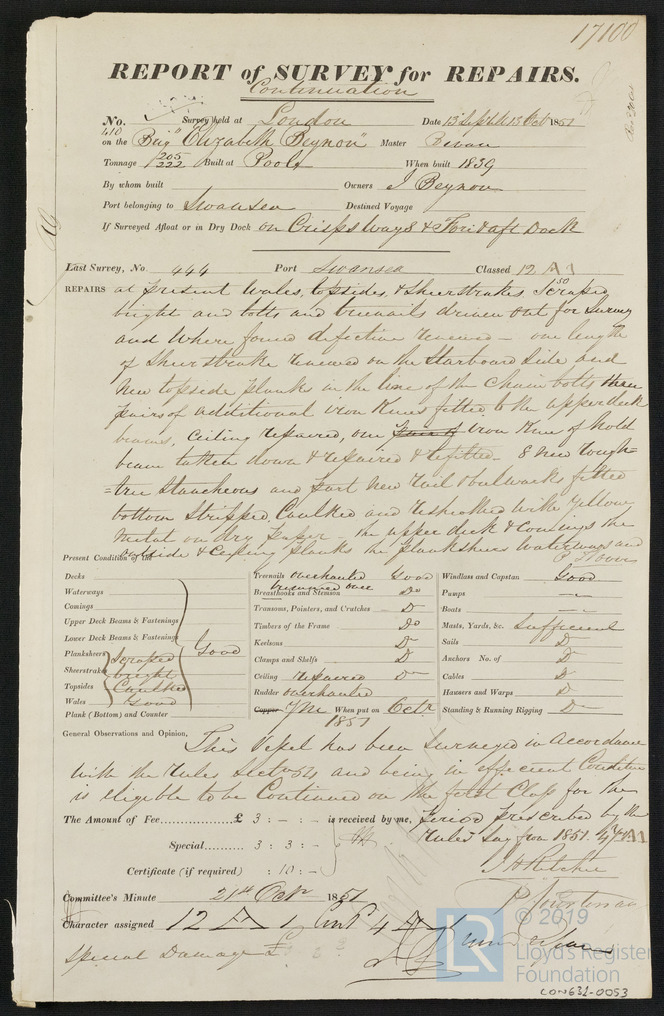 17100
REPORT of SURVEY for REPAIRS.
Continuation
No. 410 Survey held at London Date 13 Septr 13 Octr 1851
on the Brig "Elizabeth Beynon" Master Bevan
Tonnage 205/222 Built at Poole When built 1839
By whom built Owners J Beynon
Port belonging to Swansea Destined Voyage
If Surveyed Afloat or in Dry Dock on Crisps Ways & Fore & aft Dock
Last Survey, No. 444 Port Swansea Classed 12 A1
REPAIRS at present Wales, topsides, & Sheerstrakes Scraped
bright and bolts and treenails driven out for Survey
and where found defective renewed – one length
of Sheerstrake renewed on the Starboard Side and
New topside planks in the line of the Chain bolts three
pairs of additional iron Knees fitted to the upper deck
beams, Ceiling repaired, one pair of iron Knee of hold
beam taken down & repaired & refitted – 8 new rough=
=tree Stancheons and part new rail & bulwarks fitted
bottom Stripped, Caulked and resheathed with Yellow
Metal on dry paper – the upper deck & Comings the
topside & Ceiling planks the plansheers waterways and
Present Condition of the
Decks
Waterways
Comings
Upper Deck Beams & Fastenings
Lower Deck Beams & Fastenings
Planksheers
Sheerstrakes
Topsides
Wales
Plank (Bottom) and Counter
Good
Scraped
bright
Caulked
Good
Treenails overhauled Good
renewed one
Breasthooks and Stemson Do
Transoms, Pointers, and Crutches D
Timbers of the Frame Do
Keelsons D
Clamps and Shelfs D
Ceiling repaired D
Rudder overhauled
Copper YM When put on Octr 1851
Windlass and Capstan Good
Pumps
Boats
Masts, Yards, &c. Sufficient
Sails D
Anchors No. of D
Cables D
Hawsers and Warps D
Standing & Running Rigging D
General Observations and Opinion, This Vessel has been Surveyed in accordance
with the rules and being in efficient Condition
is eligible to be Continued on the first Class for the
The Amount of Fee £ 3 : – : – is received by me, Period prescribed by the
Rules say from 1851. 4 Yrs A1
Special 3 : 3 : –
Certificate (if required) : 10 : –
Committee's Minute 21st Octr 1851
Character assigned 12 A 1 Cont 4
Special Damage £
© 2019
LR
Lloyd's Register
Foundation
LON631-0053